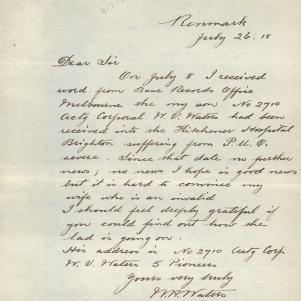 Renmark
July 26. 18
Dear Sir
On July 8 I received
word from Base Records Office
Melbourne the my son No 2710
Actg Corporal W. V. Waters had been
received into the Kitchener Hospital
Brighton suffering from P.U.O.
severe. Since that date no further
news; no news I hope is good news
but it is hard to convince my
wife who is an invalid
I should feel deeply grateful if
you could find out how the
lad is going on.
His address is No 2710 Actg Corp
W. V. Waters 5 Pioneers
Yours very truly
W. Waters